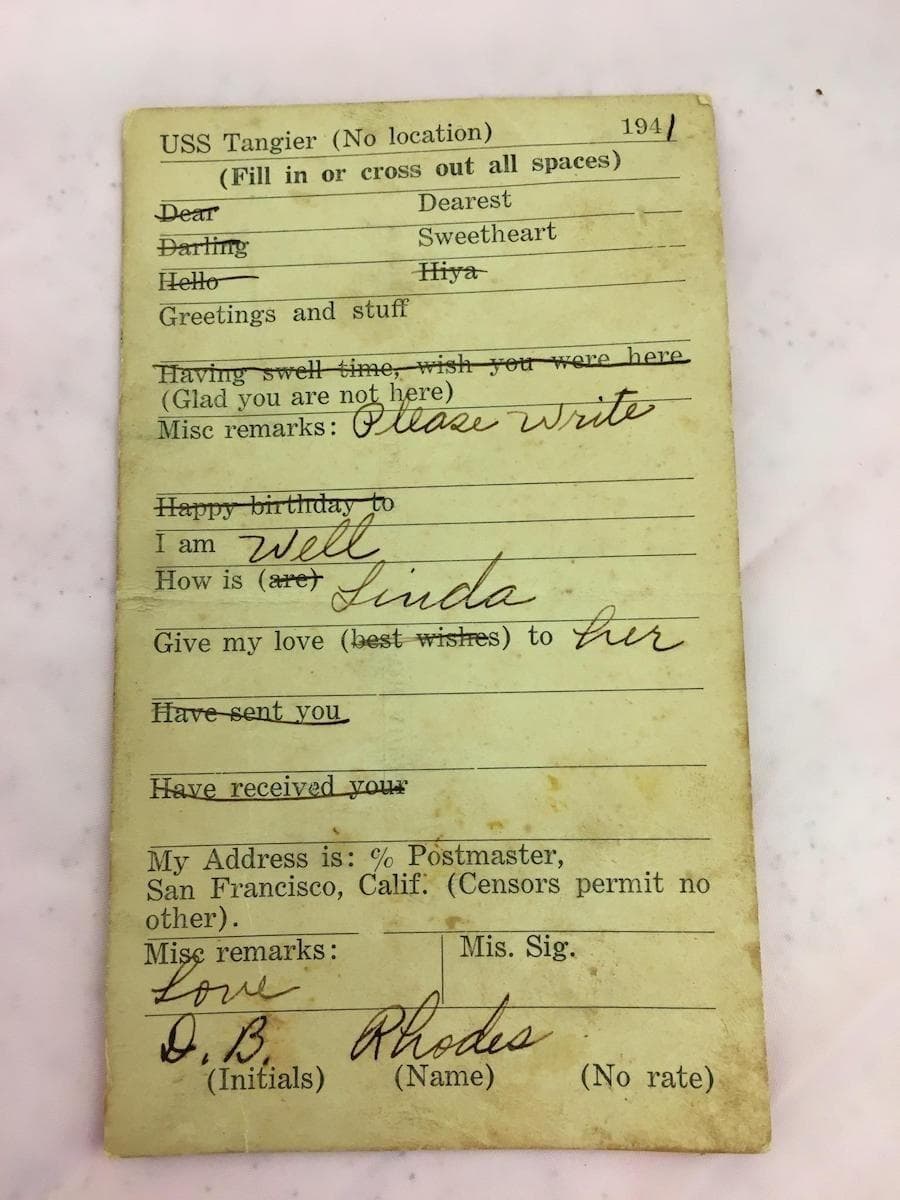 USS Tangier (No location) 1941
(Fill in or cross out all spaces)
Dear Dearest
Darling Sweetheart
Hello Hiya
Greetings and stuff
Having swell time, wish you were here
(Glad you are not here)
Misc remarks: Please write
Happy birthday to
I am well
How is (are) Linda
Give my love (best wishes) to her
Have sent you
Have received your
My Address is: % Postmaster,
San Francisco, Calif. (Censors permit no
other).
Misc remarks: Mis. Sig.
Love
D. B. Rhodes
(Initials) (Name) (No rate)